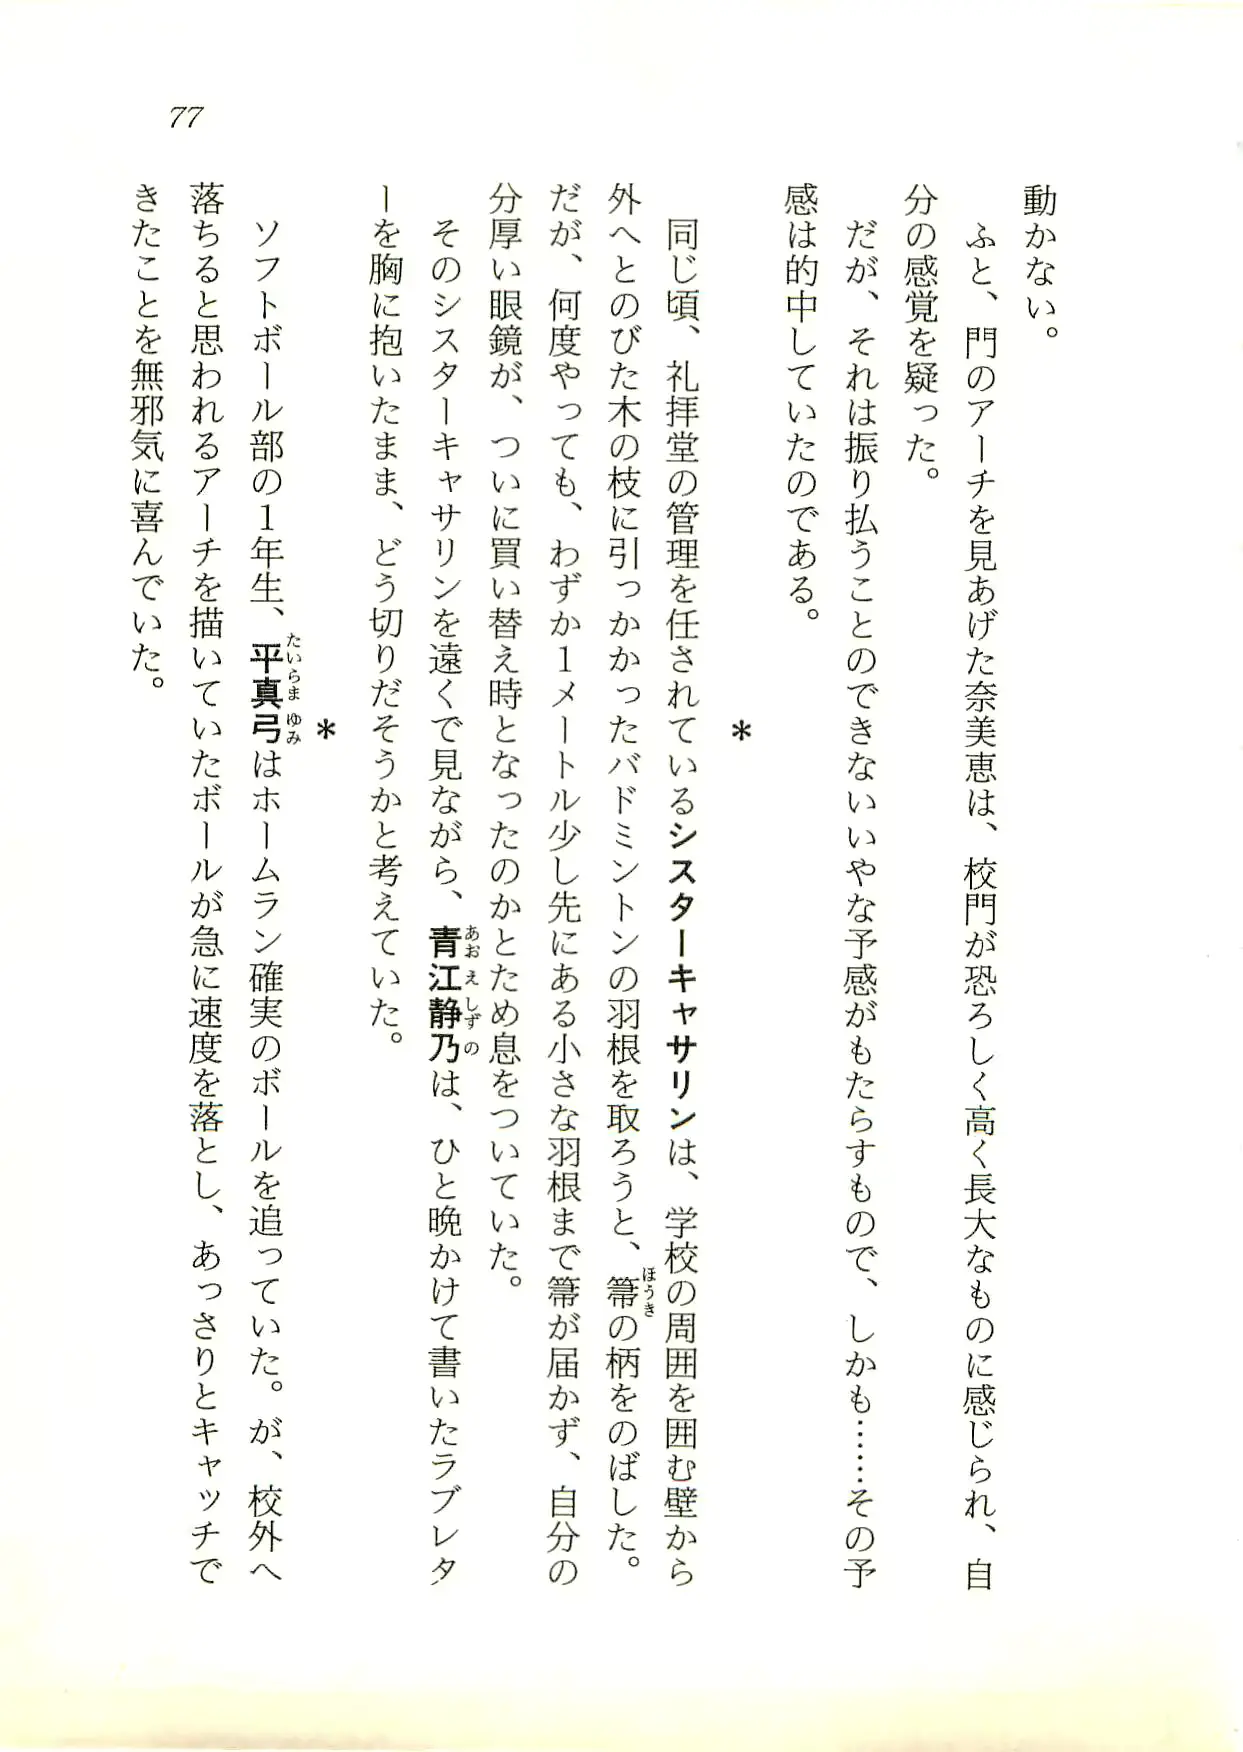 77
動かない。
ふと、門のアーチを見あげた奈美恵は、校門が恐ろしく高く長大なものに感じられ、自
分の感覚を疑った。
だが、それは振り払うことのできないいやな予感がもたらすもので、しかも……その予
感は的中していたのである。
＊
同じ頃、礼拝堂の管理を任されているシスターキャサリンは、学校の周囲を囲む壁から
外へとのびた木の枝に引っかかったバドミントンの羽根を取ろうと、箒の柄をのばした。
ほうき
だが、何度やっても、わずか1メートル少し先にある小さな羽根まで箒が届かず、自分の
分厚い眼鏡が、ついに買い替え時となったのかとため息をついていた。
そのシスターキャサリンを遠くで見ながら、青江静乃は、ひと晩かけて書いたラブレタ
あおえしずの
ーを胸に抱いたまま、どう切りだそうかと考えていた。
＊
ソフトボール部の1年生、平真弓はホームラン確実のボールを追っていた。が、校外へ
たいらまゆみ
落ちると思われるアーチを描いていたボールが急に速度を落とし、あっさりとキャッチで
きたことを無邪気に喜んでいた。